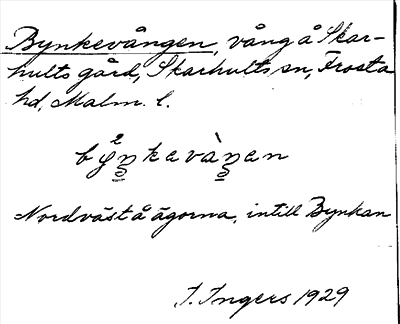 Bynkevången, vång å Skar-
hults gård, Skarhults sn, Frosta
hd, Malm. l.
Nordväst å ägorna, intill Bynkan
I. Ingers 1929